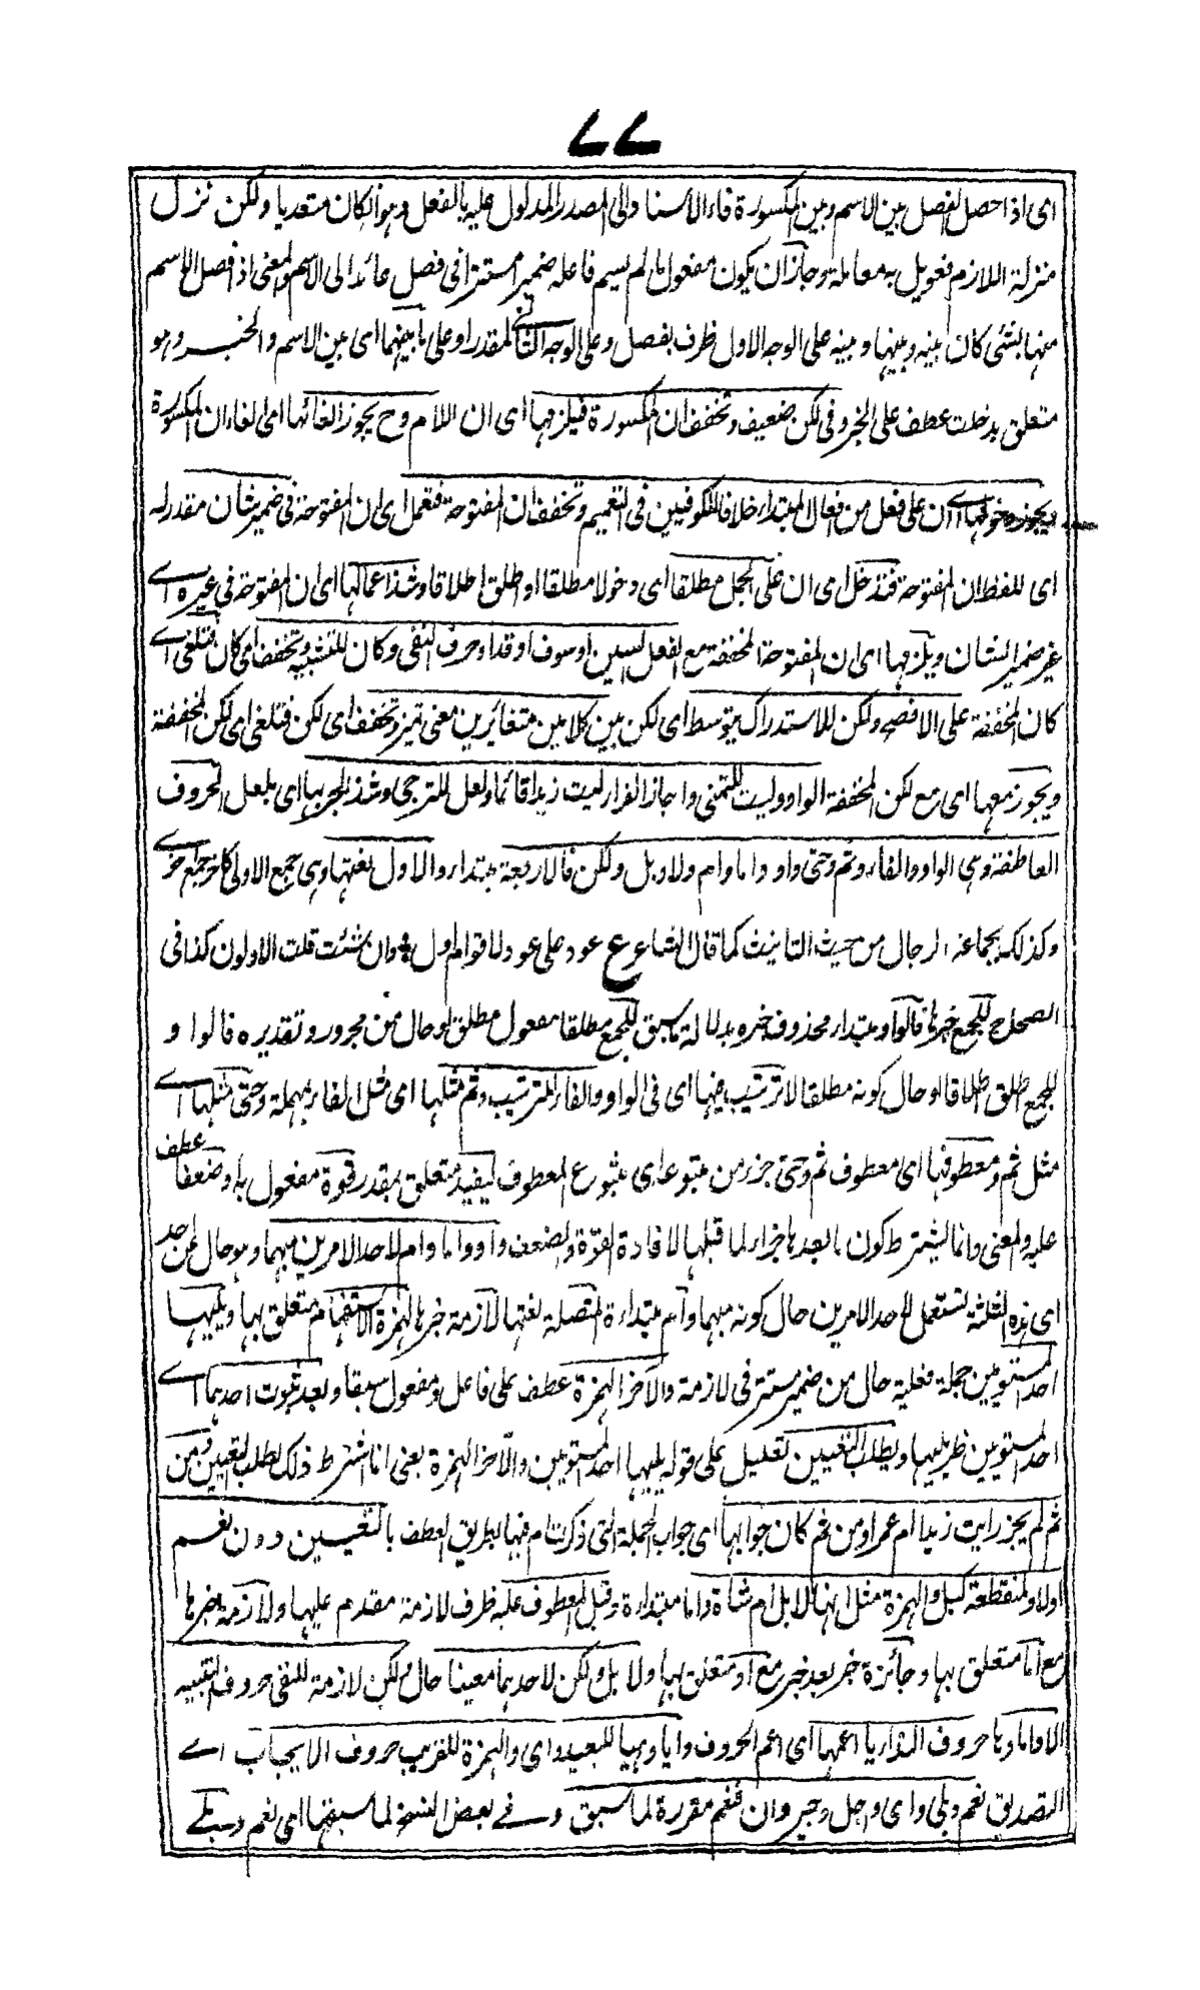 ٧٧
اى اذا حصل الفصل بين الاسم وبين المكسورة فاء الاسناد الى المصدر المدلول عليه بالفعل وهو انكان متعديا ولكن نزل
منزلة اللازم فعويل به معاملة وجاز ان يكون مفعول ما لم يسم فاعله ضمير مستتر فى فصل عائد الى الاسم والمعنى اذ فصل الاسم
منها بشئ كان بينه وبينها وبينه على الوجه الاول ظرف بفصل وعلى الوجه الثانى لمقدر او على ما بينهما اى بين الاسم والخبر وهو
متعلق بدخلت عطف على الخبر وفى لكن ضعيف وتخفف ان المكسورة فيلزمها اى ان اللام وح يجوز الغائها اى الغاء ان المكسورة
ويجوز دخولها اى ان على فعل من افعال المبتداء خلافا للكوفيين فى التعميم وتخفف ان المفتوحة فتعمل اى ان المفتوحة فى ضمير شان مقدر له
اى للفظ ان المفتوحة فتدخل اى ان على الجمل مطلقا اى دخولا مطلقا او اطلق اطلاقا وشذ اعمالها اى ان المفتوحة فى غيره اے
غير ضمير الشان ويلزمها اى ان المفتوحة المخففة مع الفعل السين او سوف او قد او حرف النفى وكان للتشبيه وتخفف اى كان فتلغى اے
كان المخففة على الافصح ولكن للاستدراك يتوسط اى لكن بين كلامين متغايرين معنى تميز وتخفف اى لكن فتلغى اى لكن المخففة
ويجوز معها اى مع لكن المخففة الواو وليت للتمنى واجاز الفراء ليت زيدا قائما ولعل للترجى وشذ الجر بها اى بلعل الحروف
العاطفة وهى الواو والفاء وثم وحتى واو واما وام ولا وبل ولكن فالاربعة مبتداء والاول نعتها وهى جمع الاولى كاخر جمع اخرے
وكذلك لجماعة الرجال من حيث التانيث كما قال الشاعر ع عود على عود لاقوام اول * وان شئت قلت الاولون كذا فى
الصحاح للجمع خبرها قالوا ومبتداء محذوف خبره بدلالة ما سبق للجمع مطلقا مفعول مطلق او حال من مجرور وتقديره فالوا و
للجمع اطلق اطلاقا او حال كونه مطلقا لا ترتيب فيها اى فى الواو والفاء للترتيب وثم مثلها اى مثل الفاء بمهلة وحتى مثلها اے
مثل ثم ومعطوفها اى معطوف ثم وحتى جزء من متبوعه اى متبوع المعطوف ليفيد متعلق بمقدر قوة مفعول به او ضعفا عطف
عليه والمعنى وانما يشترط كون ما بعدها جزاء لما قبلها لافادة القوة والضعف واو واما وام لاحد الامرين مبهما وهو حال من احد
اى هذه الثلثة تستعمل لاحد الامرين حال كونه مبهما وام مبتداءة المتصلة نعتها لازمة خبرها لهمزة الاستفهام متعلق بها ويليها
احد المستويين جملة فعلية حال من ضمير مستتر فى لازمة والآخر الهمزة عطف على فاعل ومفعول سبقا وبعد ثبوت احدهما اے
احد المستويين ظرف يليها ويطلب التعيين تعليل على قوله يليها احد المستويين والآخر الهمزة يعنى انما اشترط ذلك لطلب التعيين ومن
ثم لم يجز رايت زيدا ام عمرا ومن ثم كان جوابها اى جواب الجملة التى ذكرت ام فيها بطريق العطف بالتعيين دون نعم
اولا والمنقطعة كبل والهمزة مثل انها لابل ام شاة واما مبتداءة وقبل المعطوف عليه ظرف لازمة مقدم عليها ولازمة خبرها
مع اما متعلق بها وجائزة خبر بعد خبر مع او متعلق بها ولا بل ولكن لاحدهما معينا حال ولكن لازمة للنفى حروف التنبيه
الا واما وها حروف النداء يا اعمها اى اعم الحروف وايا وهيا للبعيد واى والهمزة للقريب حروف الايجاب اے
التصديق نعم وبلى واى واجل وجير وان فنعم مقررة لما سبق وفے بعض النسخ لما سبقها اى نعم وبلے